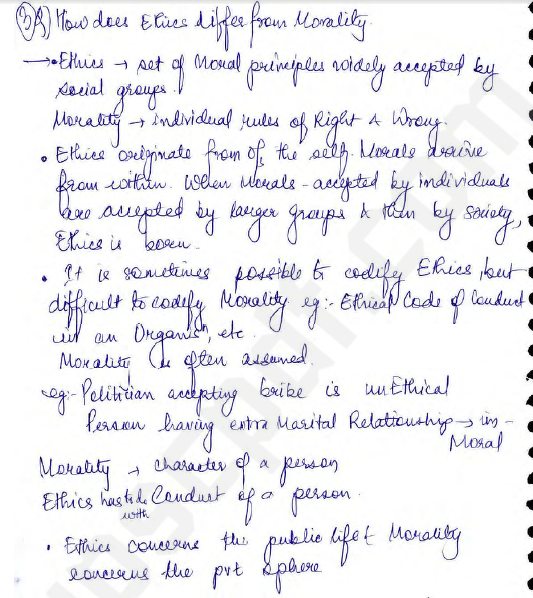 3A) How does Ethics differ from Morality.
→ • Ethics → set of Moral principles widely accepted by
social groups.
Morality → individual rules of Right & Wrong.
• Ethics originate from of the self. Morals arrive
from within. When Morals - accepted by individuals
are accepted by larger groups & then by society,
Ethics is born.
• It is sometimes possible to codify Ethics, but
difficult to codify Morality eg:- Ethical Code of Conduct
in an Organisn, etc.
Morality is often assumed.
eg:- Politician accepting bribe is unEthical
Person having extra Marital Relationship → im-
Moral
Morality → character of a person
Ethics has to do Conduct of a person.
with
• Ethics concerns the public life & Morality
concerns the pvt sphere